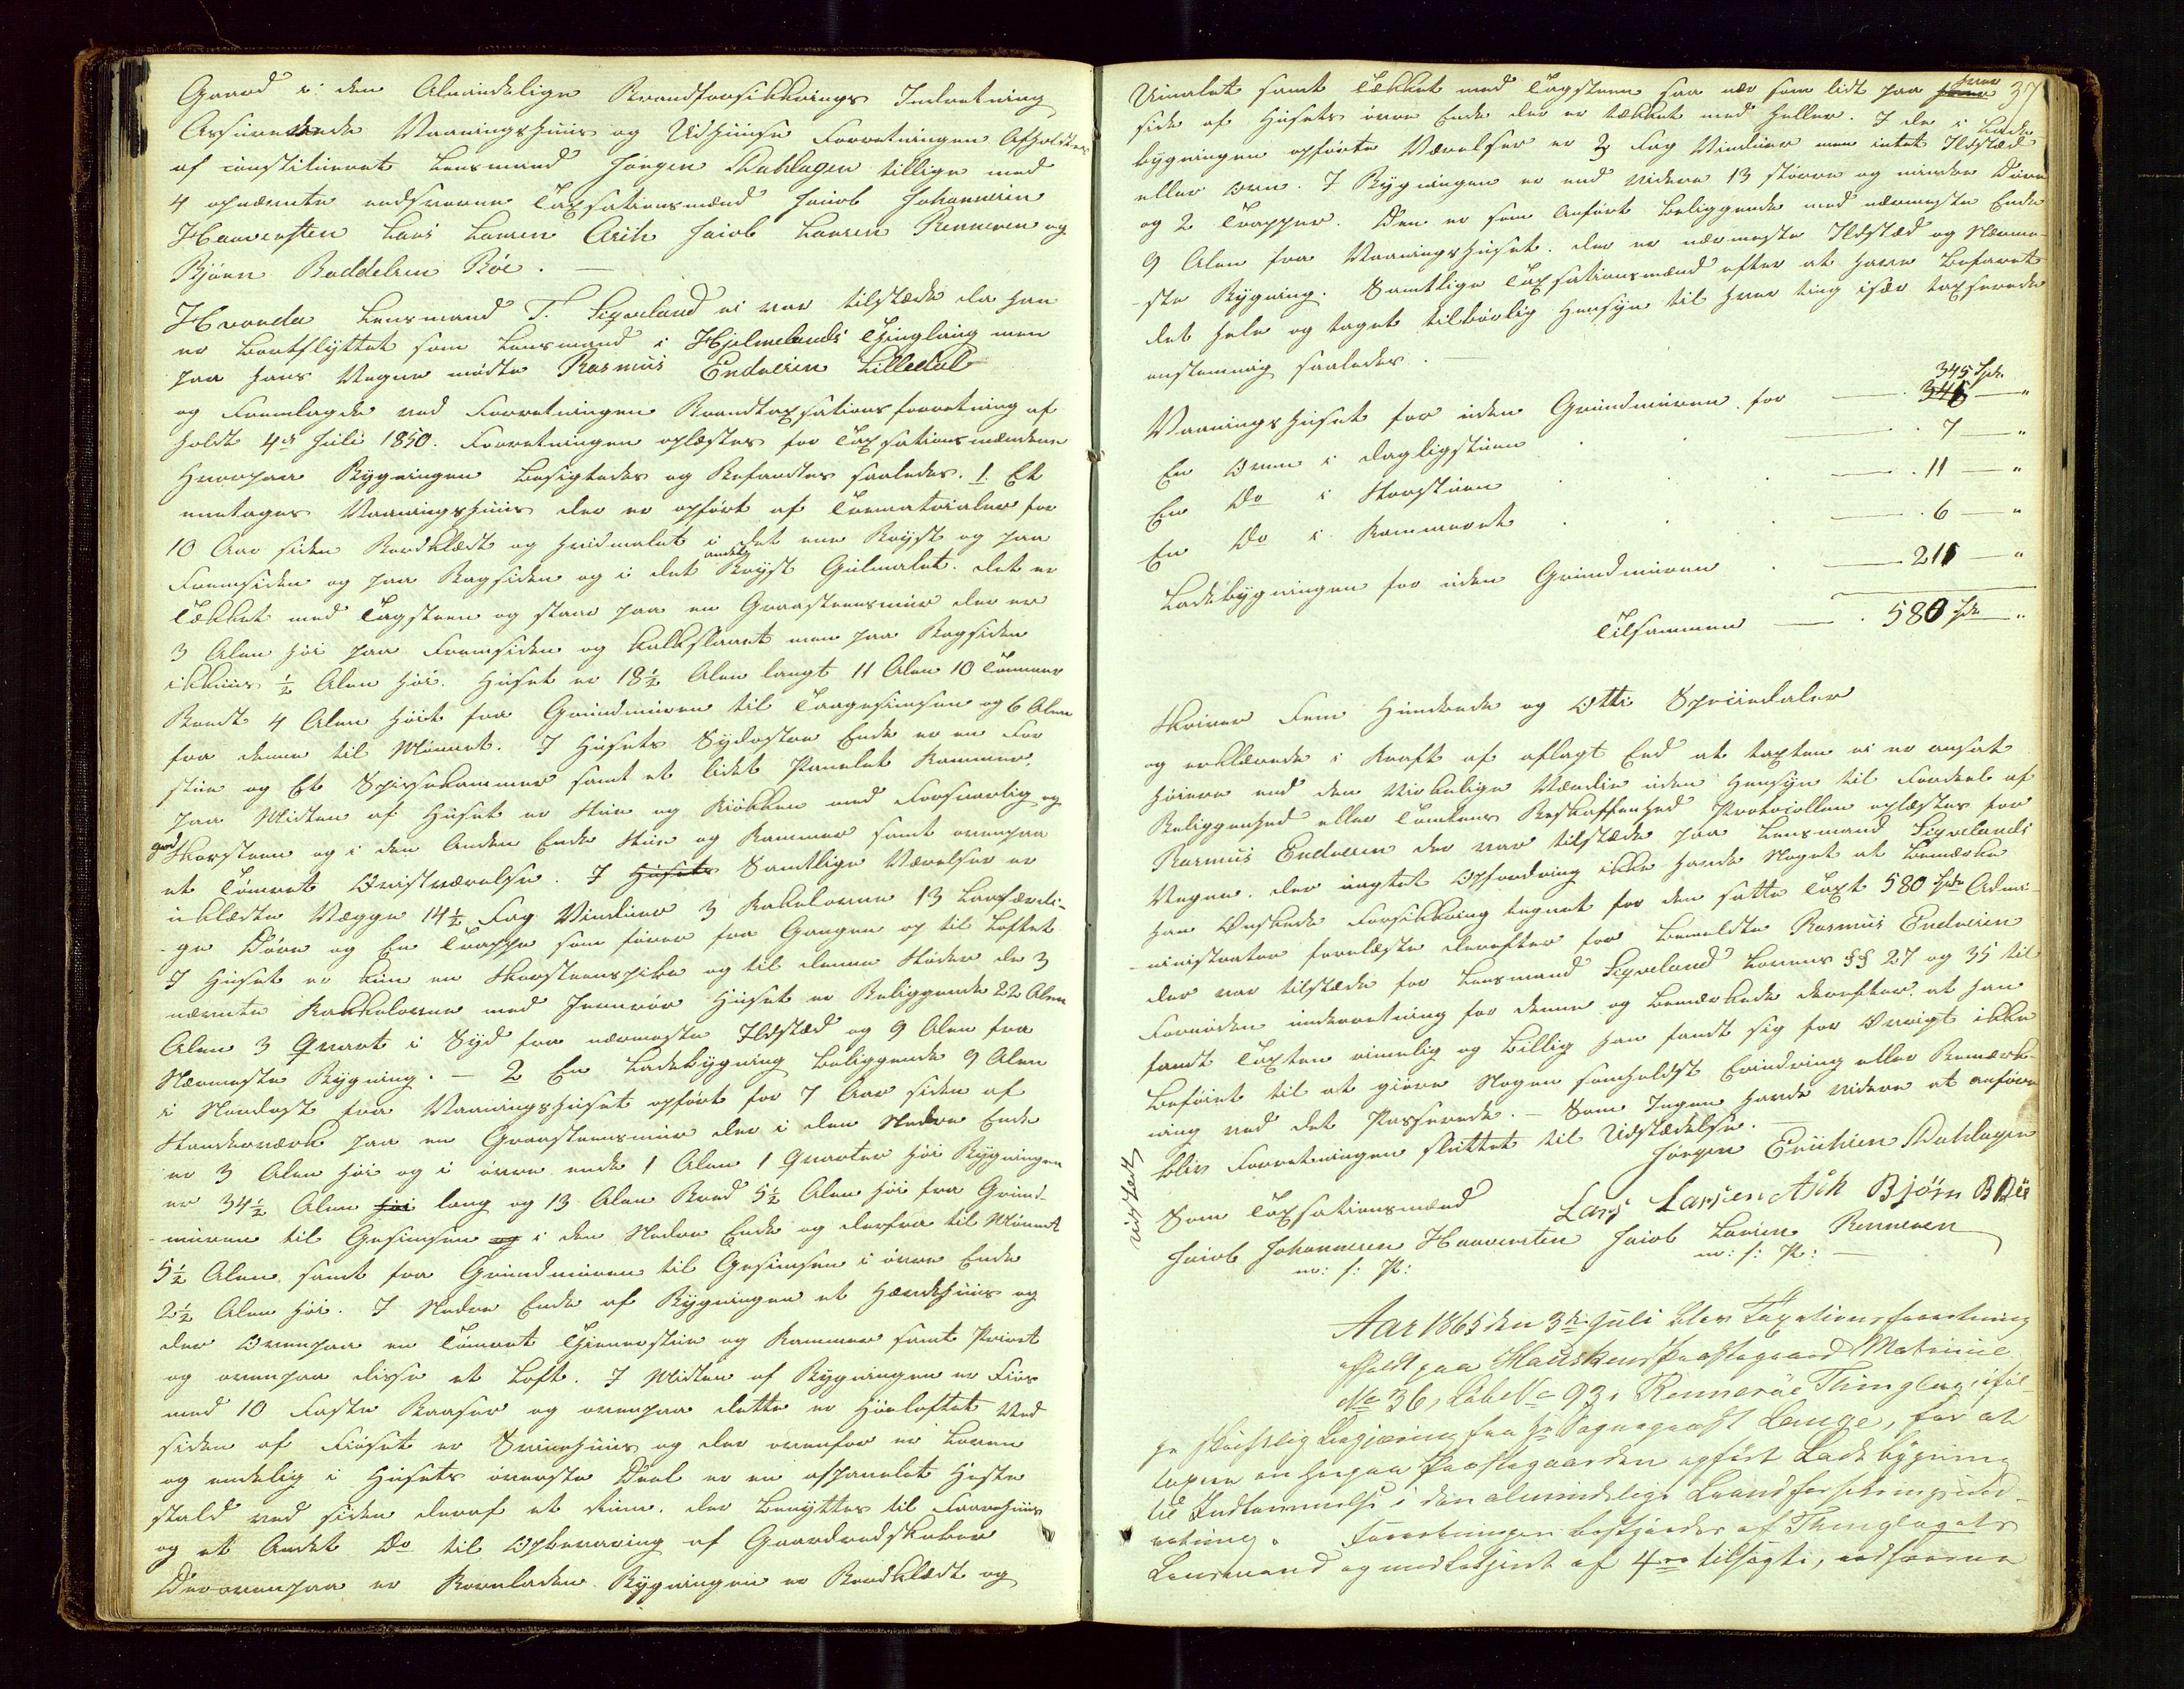 Gaard i den Almindelige Brandforsikkrings Indretning
Assurerede Vaaningshuus og Udhuuse Forretningen Afholdtes
af constitueret Lensmand Jørgen Dahlagen tillige med
4 opnævnte eedsvorne Taxsationsmænd Jacob Johannesen
Haavensten Lars Larsen Ask Jacob Larsen Renneren og
Bjørn Boddelsen Bøe. —
Hvorda Lensmand T. Sigveland ei var tilstæde da han
er bortflyttet som Lensmand i Hjelmelands Thinglaug men
paa hans Vegne mødte Rasmus Endresen Lilledal
og Fremlagde ved Forretningen Brandtaxsationsforretning af
holdt 4de Juli 1850. Forretningen oplæstes for Taxsationsmændene
hvorpaa Bygningen besigtedes og befandtes saaledes. 1 Et
eenetages Vaaningshuus der er opført af Træmaterialer for
10 Aar siden Bordklædt og hvidmalet i det ene Røyst og paa
Fremsiden og paa Bagsiden og i det andet Røyst Guulmalet. det er
Tækket med Tagsteen og staar paa en Graasteensmuur der er
3 Alen høi paa Fremsiden og kalkslaaet men paa Bagsiden
ikkuns ½ Alen høi. Huset er 18½ Alen langt 11 Alen 10 Tommer
Bredt 4 Alen høit fra Grundmuren til Taggesimsen og 6 Alen
fra denne til Mønnet. I Husets Sydostre Ende er en For
stue og Et Spissekammer samt et lidet Panelet Kammer,
paa Midten af Huset er Stue og Kiøkken med Forsvarlig og
god Skorsteen og i den Anden Ende Stue og Kammer samt ovenpaa
et Tømret Qvistværelse. I Husets Samtlige Værelser er
uklædte Vægge 14½ Fag Vinduer 3 Kakelovne 13 Laasfærdi-
ge Døre og En Trappe som fører fra Gangen op til Loftet
I Huset er kun en Skorsteenspibe og til denne støder de 3
nævnte Kakkelovne med Jernrør Huset er Beliggende 22 Alen
Alen 3 Qvart i Syd fra nærmeste Ildstæd og 9 Alen fra
Nærmeste Bygning. — 2 En Ladebygning beliggende 9 Alen
i Nordost fra Vaaningshuset opført for 7 Aar siden af
Stenderværk paa en Graasteensmuur der i den Nedre Ende
er 3 Alen høi og i øvre ende 1 Alen 1 Qvarter høi Bygningen
er 34½ Alen høi lang og 13 Alen Bred 5½ Alen høi fra Grund-
muren til Gesimsen og i den Nedre Ende og derfra til Mønnet
5½ Alen samt fra Grundmuren til Gesimsen i øvre Ende
2½ Alen høi. I Nedre Ende af Bygningen et Hændehuus og
der Ovenpaa en Tømret Tjenerstue og Kammer samt Privet
og ovenpaa disse et Loft. I Midten af Bygningen er Fiøs
med 10 Faste Baaser og ovenpaa dette er Høeloftet Ved
siden af Fiøset er Sviinehuus og der ovenfor er Loven
og endelig i Husets øverste Deel er en afpanelet Heste
stald ved siden deraf et Rum der benyttes til Faarehuus
og et Andet Do til Opbevaring af Gaardredskaber
Derovenpaa er Kornladen. Bygningen er Bordklædt og
37
Umalet samt Tækket med Tagsteen saa nær som lidt paa hver
side af Husets øvre Ende der er tækket med Heller. I de i Lade-
bygningen opførte Værelser er 3 Fag Vinduer men intet Ildstæd
eller ovn. I Bygningen er end videre 13 større og mindre Døre
og 2 Trapper. Den er som Anført beliggende med nærmeste Ende
9 Alen fra Vaaningshuset. der er nærmeste Ildstæd og Nærme-
ste Bygning. Samtlige Taxsationsmænd efter at have Befaret
det hele og taget tilbørlig Hensyn til hver ting især taxserede
eenstemmig saaledes. —
Vaaningshuset for uden Grundmuren for — 346 345 Spd. "
En Ovn i Dagligstuen — 7 — "
En Do i Storstuen — 11 — "
En Do i Kammeret — 6 — "
Ladebygningen for uden Grundmuren — 211 — "
Tilsammen — 580 Spd — "
Skriver Fem Hundrede og Otti Speciedaler
og erklærede i Kraft af aflagt Eed at taxten ei er ansat
høiere end den Virkelige Værdie uden Hensyn til Fordeel af
Beliggenhed eller Tomtens Beskaffenhed Protocollen oplæstes for
Rasmus Endresen der var tilstæde paa Lensmand Sigvelands
Vegne. der uagtet Opfordring ikke havde Noget at bemærke
han Ønskede Forsikkring tegnet for den satte Taxt 580 Spd Admi-
ninistrator forelæste derefter for bemeldte Rasmus Endresen
der var tilstæde for Lensmand Sigveland Lovens §§ 27 og 35 til
Fornøden underretning for denne og bemærkede derefter, at han
fandt Taxten rimelig og billig han fandt sig for Øvrigt ikke
beføiet til at giøre Nogen somhelst Erindring eller Bemærk-
ning ved det Passerede. — Som Ingen havde videre at anføre
blev Forretningen sluttet til Udstædelse. —
udstedt
Jørgen Erichsen Dahlagen
Som Taxsationsmænd Lars Larsen Ask Bjørn B Bøe
Jacob Johannesen Haavensten Jacob Larsen Renneren
m: f: P: m: f: P: —
Aar 1865 den 3die Juli blev Taxationsforretning
afholdt paa Hauskens Præstegaard Matricul
No 36, Løbe No 93 i Rennesøe Thinglag, iføl-
ge skriftlig Begjæring fra Hr Sogneprest Lange, for at
taxere en her paa Præstegaarden opført Ladebygning
til Indlemmelse i den almindelige Brandforsikringsind-
retning. Forretningen bestyredes af Thinglagets
Lensmand og med betjent af 4re tilsagte, eedsvorne